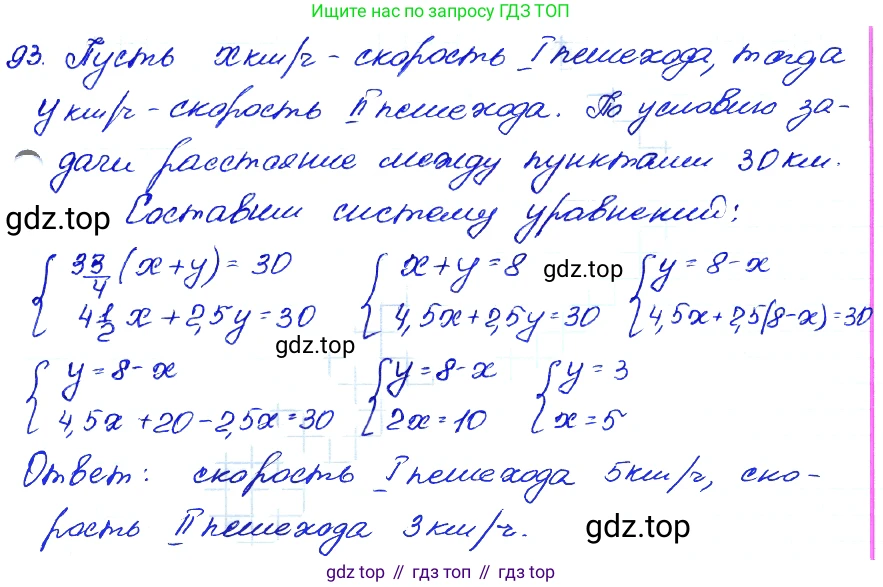 Ищите нас по запросу ГДЗ ТОП
93. Пусть x км/ч - скорость I пешехода, тогда
y км/ч - скорость II пешехода. По условию за-
дачи расстояние между пунктами 30 км.
gdz.top Составим систему уравнений:
{ 3 3/4 (x+y) = 30 { x+y=8 gdz.top { y = 8-x
{ 4 1/2 x + 2,5y = 30 { 4,5x+2,5y = 30 { 4,5x+2,5(8-x) = 30
gdz.top
{ y = 8-x { y=8-x { y = 3
{ 4,5x + 20 - 2,5x = 30 { 2x = 10 { x = 5
Ответ: скорость I пешехода 5 км/ч, ско-
рость II пешехода 3 км/ч. gdz.top
gdz.top // гдз топ // gdz.top